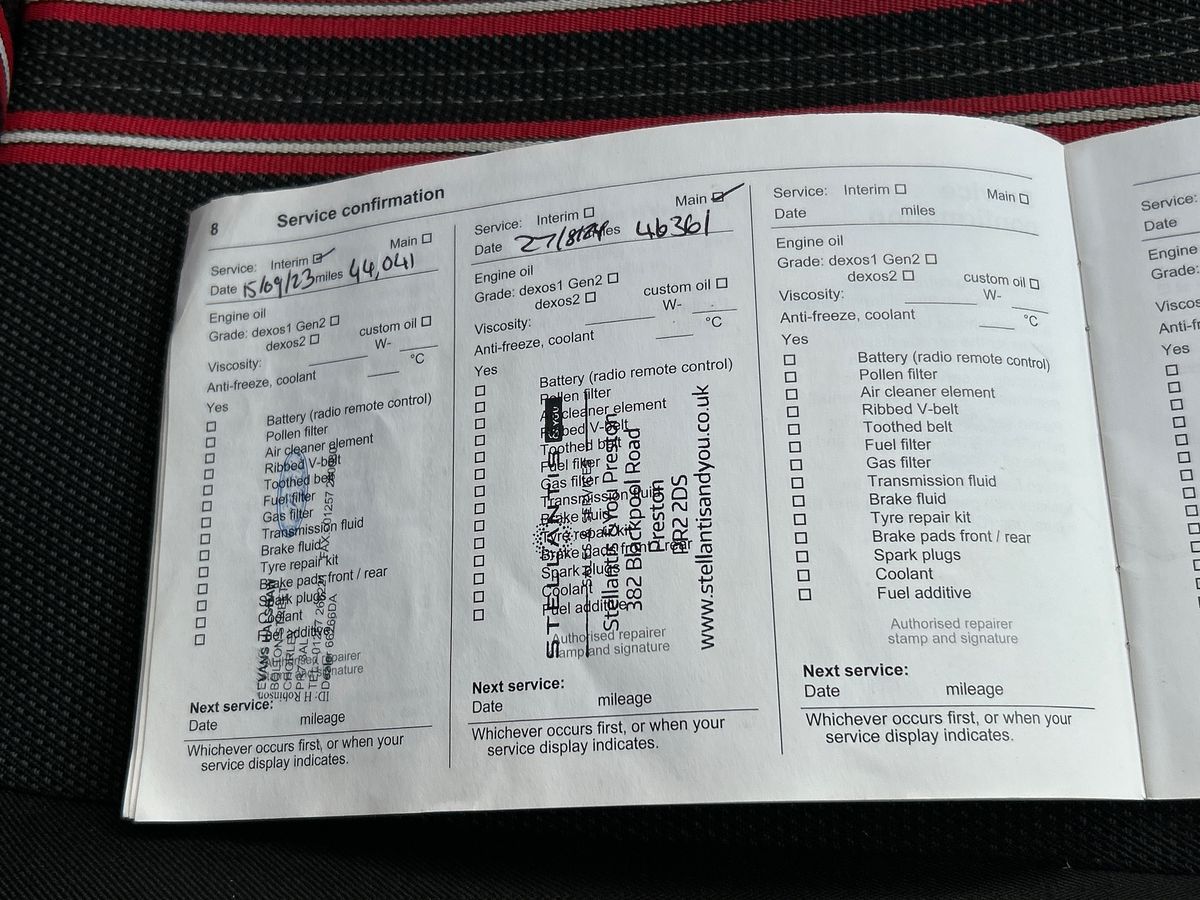 8 Service confirmation
Service: Interim ☑ Main ☐
Date 15/09/23 miles 44,041
Engine oil
Grade: dexos1 Gen2 ☐
dexos2 ☐ custom oil ☐
Viscosity: W-
Anti-freeze, coolant °C
Yes
☐ Battery (radio remote control)
☐ Pollen filter
☐ Air cleaner element
☐ Ribbed V-belt
☐ Toothed belt
☐ Fuel filter
☐ Gas filter
☐ Transmission fluid
☐ Brake fluid
☐ Tyre repair kit
☐ Brake pads front / rear
☐ Spark plugs
☐ Coolant
☐ Fuel additive
Authorised repairer
stamp and signature
EVANS HALSHAW
BOLTON STREET
CHORLEY
PR7 3AL
Next service:
Date mileage
Whichever occurs first, or when your
service display indicates.
Service: Interim ☐ Main ☑
Date 27/8/24 miles 46361
Engine oil
Grade: dexos1 Gen2 ☐
dexos2 ☐ custom oil ☐
Viscosity: W-
Anti-freeze, coolant °C
Yes
☐ Battery (radio remote control)
☐ Pollen filter
☐ Air cleaner element
☐ Ribbed V-belt
☐ Toothed belt
☐ Fuel filter
☐ Gas filter
☐ Transmission fluid
☐ Brake fluid
☐ Tyre repair kit
☐ Brake pads front / rear
☐ Spark plugs
☐ Coolant
☐ Fuel additive
Authorised repairer
stamp and signature
STELLANTIS &YOU
Stellantis &You Preston
382 Blackpool Road
Preston
PR2 2DS
www.stellantisandyou.co.uk
Next service:
Date mileage
Whichever occurs first, or when your
service display indicates.
Service: Interim ☐ Main ☐
Date miles
Engine oil
Grade: dexos1 Gen2 ☐
dexos2 ☐ custom oil ☐
Viscosity: W-
Anti-freeze, coolant °C
Yes
☐ Battery (radio remote control)
☐ Pollen filter
☐ Air cleaner element
☐ Ribbed V-belt
☐ Toothed belt
☐ Fuel filter
☐ Gas filter
☐ Transmission fluid
☐ Brake fluid
☐ Tyre repair kit
☐ Brake pads front / rear
☐ Spark plugs
☐ Coolant
☐ Fuel additive
Authorised repairer
stamp and signature
Next service:
Date mileage
Whichever occurs first, or when your
service display indicates.
Service:
Date
Engine
Grade:
Yes